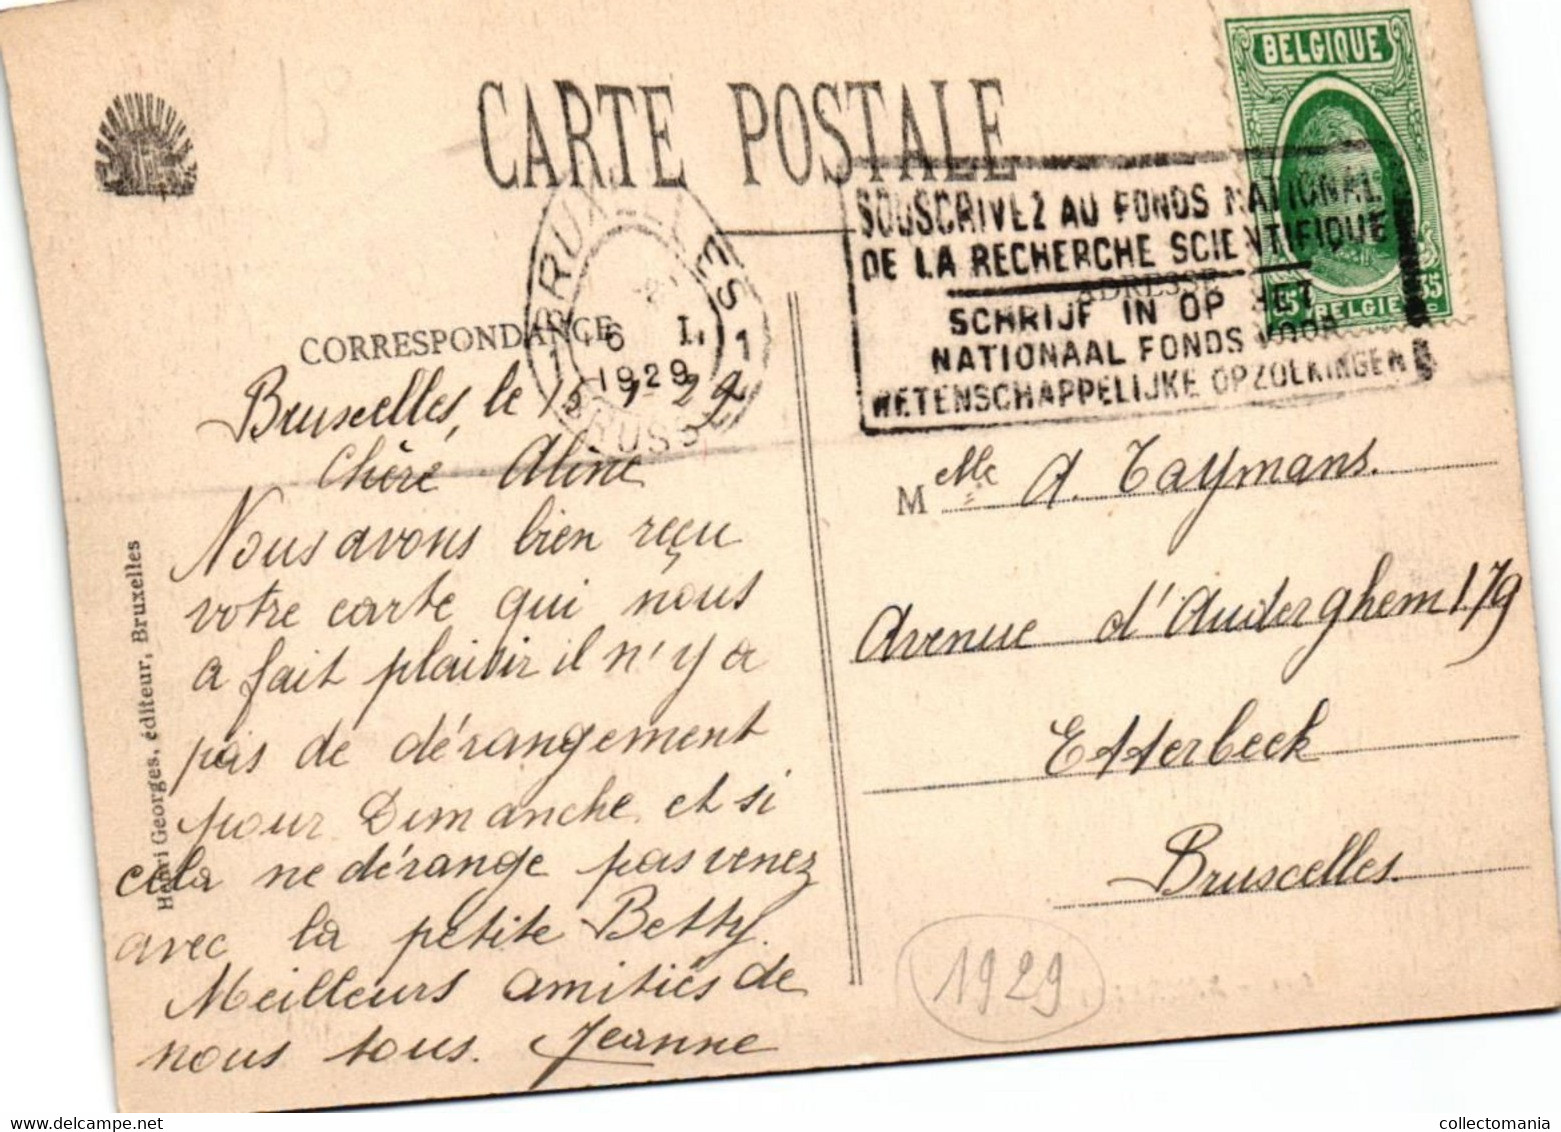 CARTE POSTALE
BELGIQUE
BELGIË
SOUSCRIVEZ AU FONDS NATIONAL
DE LA RECHERCHE SCIENTIFIQUE
SCHRIJF IN OP HET
NATIONAAL FONDS VOOR
WETENSCHAPPELIJKE OPZOEKINGEN
ADRESSE
1 BRUXELLES 1
1929
CORRESPONDANCE
Bruxelles, le 15 1 29
Chère Aline
Nous avons bien reçu
votre carte qui nous
a fait plaisir il n'y a
pas de dérangement
pour Dimanche et si
cela ne dérange pas venez
avec la petite Betty.
Meilleurs amitiés de
nous tous. Jeanne
Henri Georges, éditeur, Bruxelles
Melle A. Taymans.
Avenue d'Auderghem 179
Etterbeek
Bruxelles.
1929
collectomania.delcampe.net
collectomania